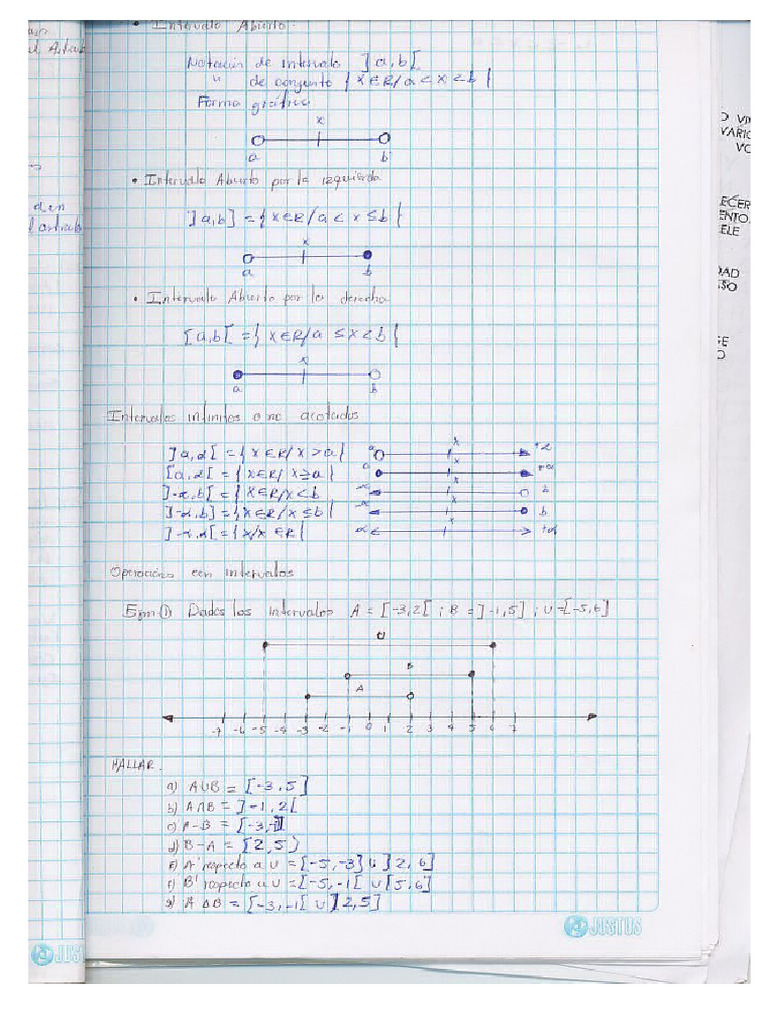 • Intervalo Abierto.
Notación de intervalo ]a,b[
" de conjunto {x∈R/a<x<b}
Forma gráfica
x
a b
• Intervalo Abierto por la izquierda
]a,b] = {x∈R/a<x≤b}
x
a b
• Intervalo Abierto por la derecha
[a,b[ = {x∈R/a≤x<b}
x
a b
Intervalos infinitos o no acotados
]a,α[ = {x∈R/x>a} a x +α
[a,α[ = {x∈R/x≥a} a x +α
]-α,b[ = {x∈R/x<b -α x b
]-α,b] = {x∈R/x≤b} -α x b
]-α,α[ = {x/x∈R} -α x +α
Operaciones con intervalos
Ejm① Dados los intervalos A = [-3,2[ ; B = ]-1,5] ; U=[-5,6]
U
B
A
-7 -6 -5 -4 -3 -2 -1 0 1 2 3 4 5 6 7
HALLAR.
a) A∪B = [-3,5]
b) A∩B = ]-1,2[
c) A-B = [-3,-1]
d) B-A = [2,5]
e) A' respecto a U = [-5,-3[ ∪ ]2,6]
f) B' respecto a U = [-5,-1[ ∪ [5,6]
g) A Δ B = [-3,-1[ ∪ ]2,5]
JUSTUS
JUST
den
VARIO
ENTO
ELE
DAD